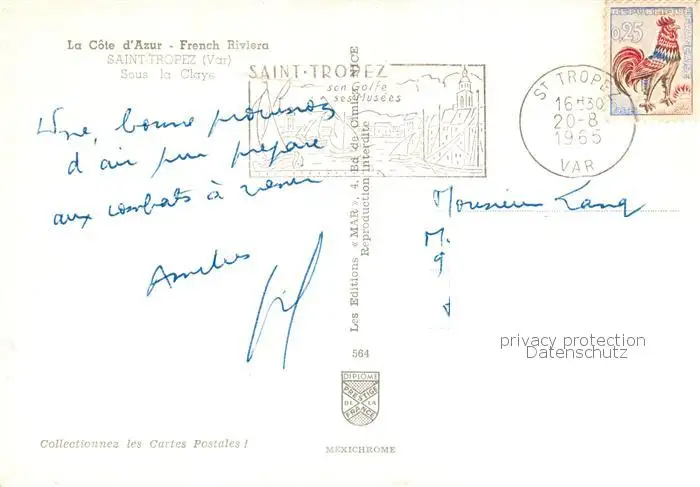 La Côte d'Azur - French Riviera
SAINT-TROPEZ (Var)
Sous la Claye
SAINT-TROPEZ
son Golfe
ses Musées
0,25
ST TROPEZ
16-30
20-8
1965
VAR
Une bonne provision
d'air pur prépare
aux combats à venir
Amitiés
Monsieur Lang
M.
9
Les Editions « MAR », 4, Bd de Cimiez, NICE
Reproduction interdite
privacy protection
Datenschutz
564
DIPLOME
PRESTIGE
DE LA
FRANCE
Collectionnez les Cartes Postales !
MEXICHROME